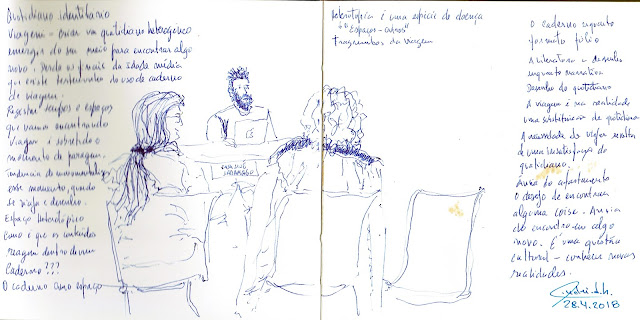 Quotidiano identitário
Viagem - criar um quotidiano heterogéneo
emergir do seu meio para encontrar algo
novo. Desde os finais da idade média
que existe testemunho do uso de caderno
de viagem.
Registar tempos e espaços
que vamos encontrando
Viagem é sobretudo o
momento de paragem.
tendência de
esse momento, quando
se viaja e desenha.
Espaço heterotópico
Como é que os conteúdos
reagem dentro de um
Caderno???
O caderno como espaço
Heterotopia é uma espécie de doença
"Espaços-outros"
Fragmentos da viagem
CASA JOSÉ
SARAMAGO
O caderno enquanto
formato fólio
A literatura e desenho
enquanto narrativa
Desenho do quotidiano
A viagem é na realidade
uma substituição de quotidiano
A necessidade de viajar resulta
de uma insatisfação do
quotidiano.
Ânsia do afastamento
O desejo de encontrar
alguma coisa. Ânsia
de encontrar algo
novo. É uma questão
cultural - conhecer novas
realidades.
28.4.2018